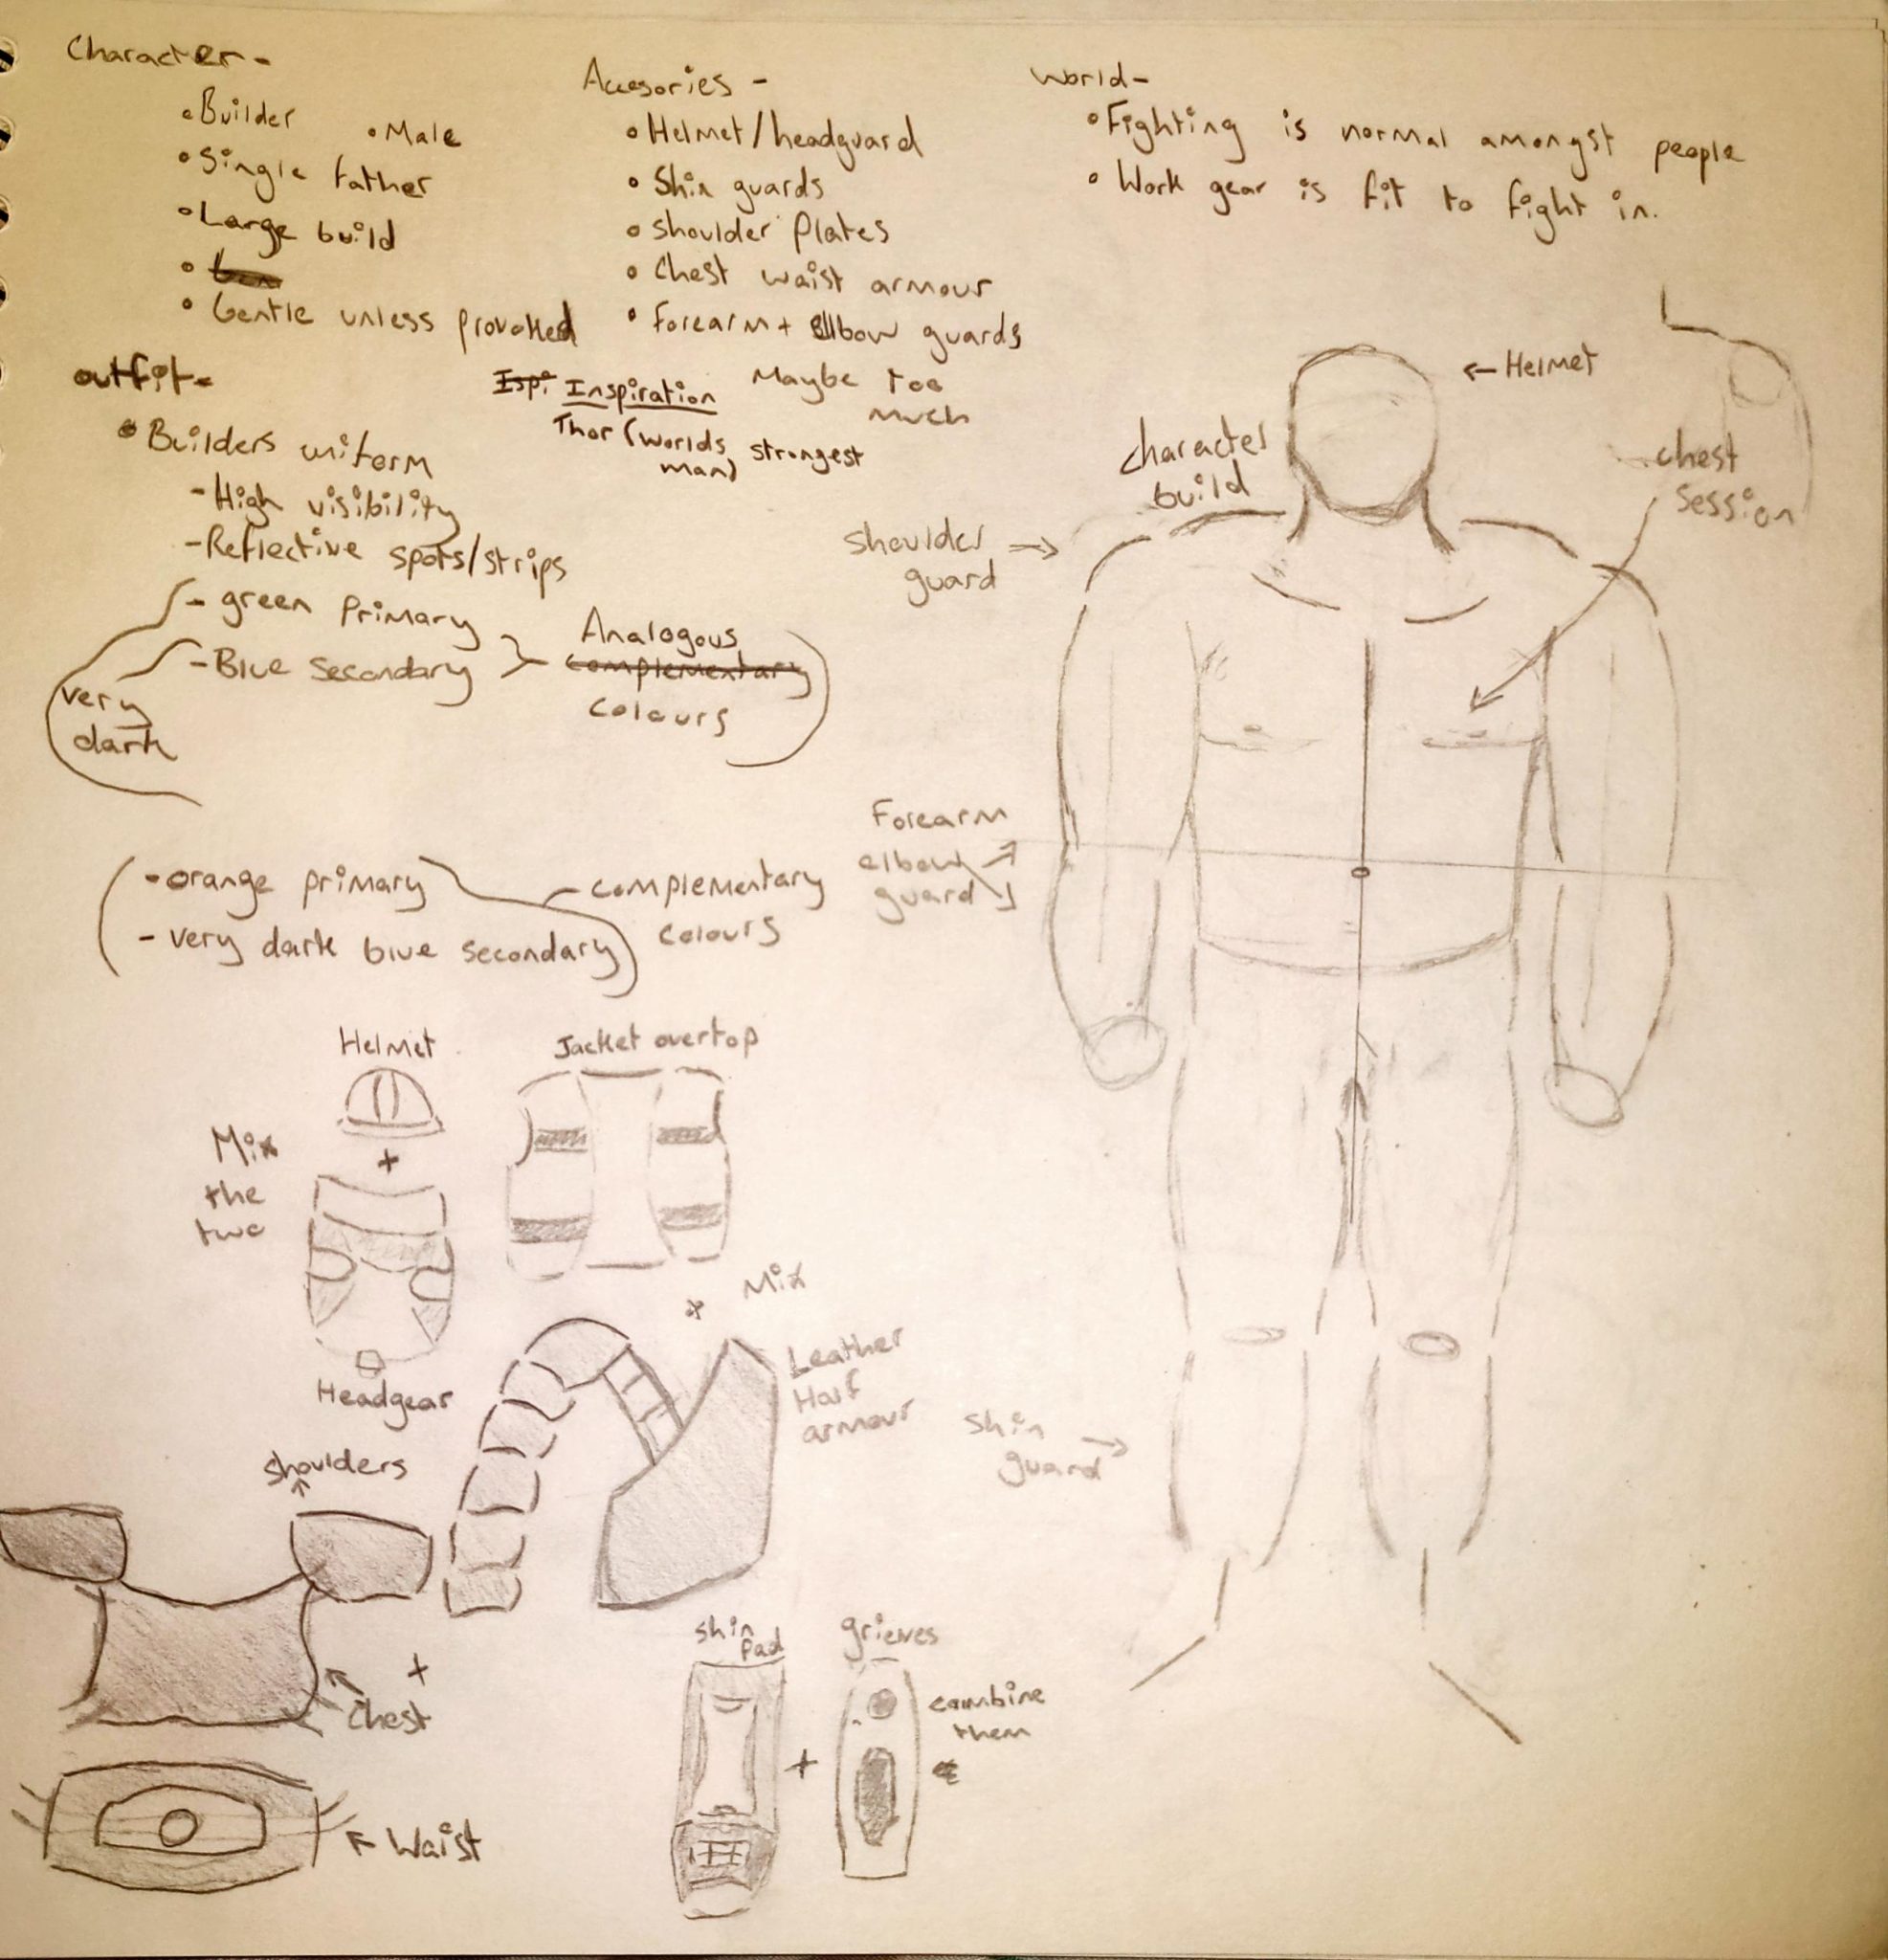 Character-
• Builder
• Male
• Single father
• Large build
•
• Gentle unless provoked
Accesories -
• Helmet/headguard
• Shin guards
• Shoulder Plates
• Chest waist armour
• Forearm + Ellbow guards
Maybe too
much
World-
• Fighting is normal amongst people
• Work gear is fit to fight in.
outfit-
• Builders uniform
- High visibility
- Reflective spots/strips
- green Primary
- Blue Secondary
very
dark
Analogous
complementary
colours
Ispi Inspiration
Thor (worlds strongest
man)
- orange primary
- very dark blue secondary
- complementary
colours
← Helmet
character
build
chest
session
shoulder
guard →
Forearm
elbow
guard
shin
guard →
Helmet
Mix
the
two
+
Headgear
Jacket overtop
+ Mix
Leather
Half
armour
shoulders
Chest
+
Waist
shin
Pad
+
grieves
combine
them